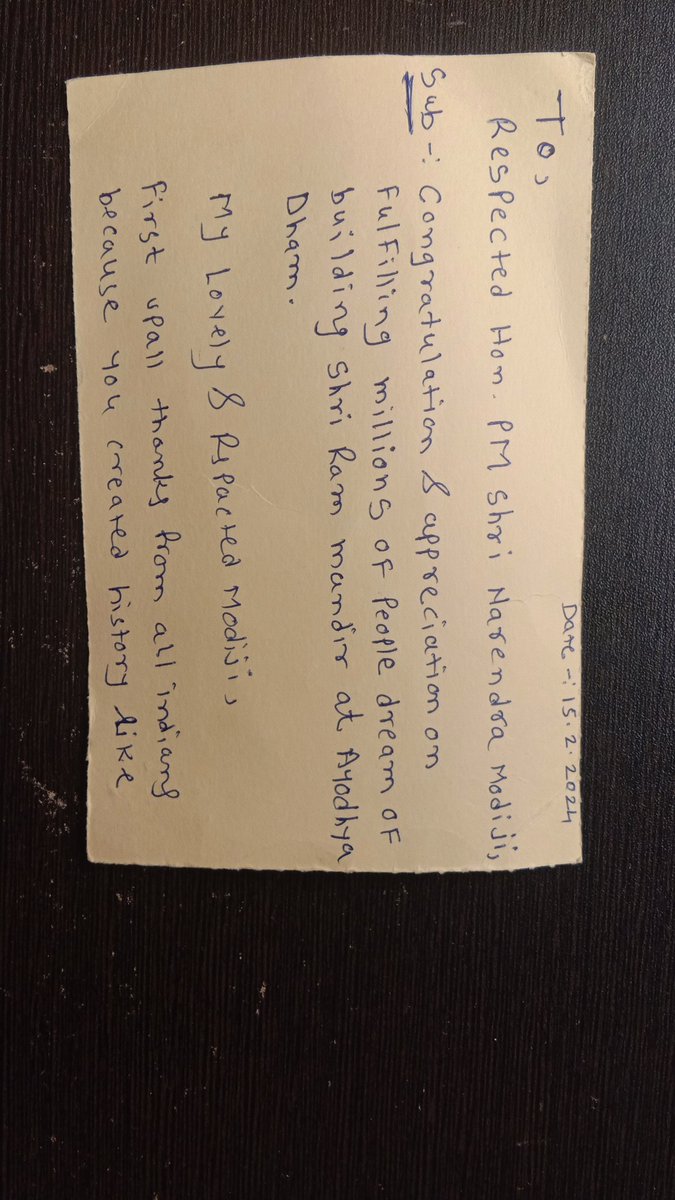 Date -: 15.2.2024
To,
Respected Hon. PM Shri Narendra Modiji,
Sub -: Congratulation & appreciation on
Fulfilling millions of People dream of
building Shri Ram mandir at Ayodhya
Dham.
My Lovely & Rspacted Modiji,
first upall thanks from all indians
because you created history like